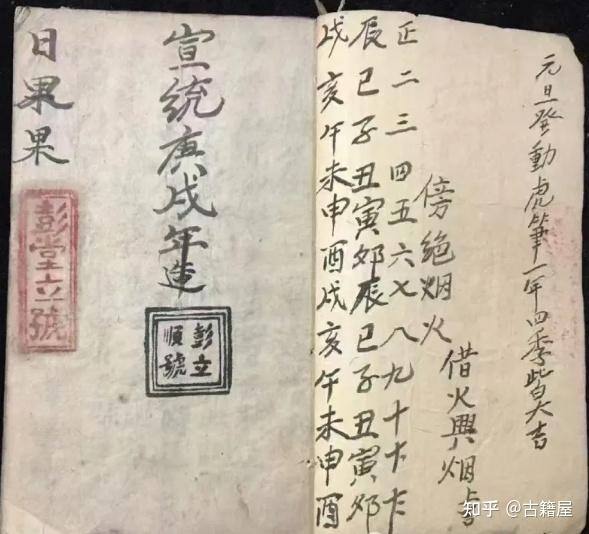 元旦發動虎筆一年四季皆大吉
借火興烟
傍絕烟火
正二三四五六七八九十
辰巳子丑寅卯辰巳子丑寅卯
戌亥午未申酉戌亥午未申酉
宣統庚戌年造
彭立
順號
日果果
彭堂立號
知乎 @古籍屋